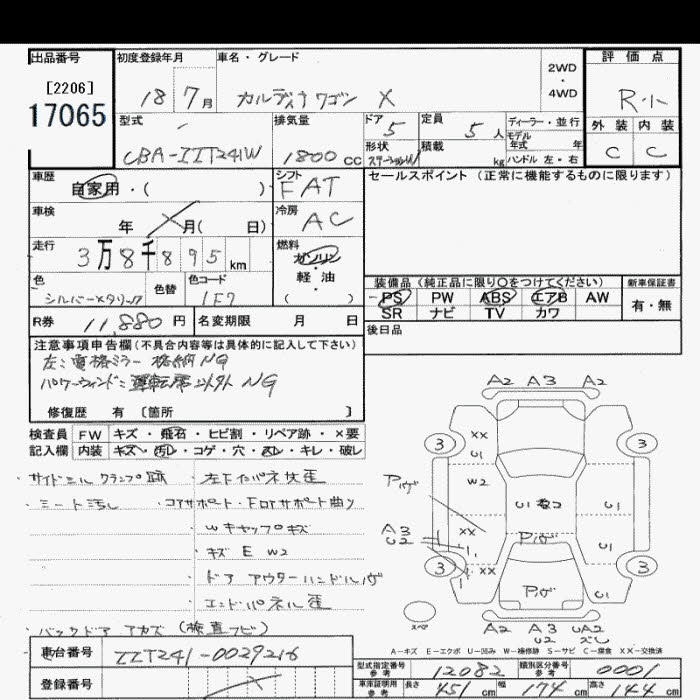 出品番号 初度登録年月 車名・グレード 評価点
[2206]
17065
18 7月 カルディナワゴン X 2WD・4WD R・1ト
型式 排気量 ドア 5 定員 5人 ディーラー・並行 外装 内装
モデル年式 年
CBA-ZZT241W 1800cc 形状 ステーションW 積載 kg ハンドル 左・右 C C
車歴 シフト セールスポイント (正常に機能するものに限ります)
自家用・( ) FAT
車検 冷房
年 月( 日) AC
走行 燃料
3万8千895km ガソリン・軽油・( )
色 色替 色コード 装備品 (純正品に限り○をつけてください) 新車保証書
シルバーメタリック 1F7 PS PW ABS エアB AW 有・無
SR ナビ TV カワ
R券 11,880円 名変期限 月 日 後日品
注意事項申告欄(不具合内容等は具体的に記入して下さい)
左:電格ミラー 格納NG
パワーウィンド:運転席以外 NG
修復歴 有 〔箇所 〕
検査員記入欄 FW キズ・飛石・ヒビ割・リペア跡・×要
内装 キズ・汚レ・コゲ・穴・スレ・キレ・破レ
・サイドシル クランプ跡 ・左下インパネ交歪
・シート汚し ・コアサポート・Fロアサポート曲り
・Wキャップキズ
・キズ E W2
・ドアアウターハンドルハゲ
・エンドパネル歪
・バックドア アカズ (検査フビ)
A2 A3 A2
3 XX U1 3
W2
アハゲ U1 U2 U1
A3 U2 XX Pハゲ
3 XX U1 3
Pハゲ
スペア A2 A3 U2 UA2 ズレ
A-キズ E-エクボ U-凹み W-補修跡 S-サビ C-腐食 XX-交換済
車台番号 ZZT241-0029216
型式指定番号参考 12082 類別区分番号参考 0001
登録番号
車庫証明用参考 長さ 451cm 幅 174cm 高さ 144cm